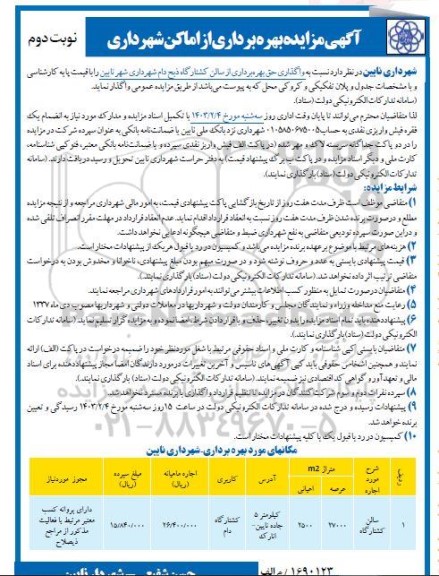 آگهی مزایده بهره برداری از اماکن شهرداری
نوبت دوم
شهرداری نایین در نظر دارد نسبت به واگذاری حق بهره برداری از سالن کشتارگاه ذبح دام شهرداری شهر نایین را با قیمت پایه کارشناسی
و با مشخصات جدول و پلان تفکیکی و کروکی محل که به پیوست می باشد از طریق مزایده عمومی واگذار نماید.
(سامانه تدارکات الکترونیکی دولت (ستاد).
لذا متقاضیان محترم می توانند تا پایان وقت اداری روز سه شنبه مورخ ۱۴۰۳/۲/۴ با تکمیل اسناد مزایده و مدارک مورد نیاز به انضمام یک
فقره فیش واریزی نقدی به حساب شهرداری نزد بانک ملی نایین یا ضمانت نامه بانکی به عنوان سپرده شرکت در مزایده
را در دو پاکت جداگانه سربسته لاک و مهر شده (در پاکت الف فیش واریز نقدی سپرده و یا ضمانت نامه بانکی معتبر، فتوکپی شناسنامه،
کارت ملی و دیگر اسناد مزایده و در پاکت ب برگ پیشنهاد قیمت) به دفتر حراست شهرداری نایین تحویل و رسید دریافت دارند. (سامانه
تدارکات الکترونیکی دولت (ستاد) بارگذاری نمایند).
شرایط مزایده:
۱) متقاضی موظف است ظرف مدت هفت روز از تاریخ بازگشایی پاکت پیشنهادی قیمت، به امور مالی شهرداری مراجعه و از نتیجه مزایده
مطلع و در صورت برنده شدن ظرف مدت هفت روز نسبت به انعقاد قرارداد اقدام نماید. عدم انعقاد قرارداد در مهلت مقرر انصراف تلقی شده
و در این صورت سپرده تودیعی متقاضی به نفع شهرداری ضبط و متقاضی هیچگونه ادعایی نخواهد داشت.
۲) هزینه های مرتبط با موضوع بر عهده برنده مزایده می باشد و کمیسیون در رد یا قبول هر یک از پیشنهادات مختار است.
۳) قیمت پیشنهادی بایستی به عدد و حروف نوشته شود و در صورت مبهم بودن مبلغ پیشنهادی، ناخوانا و مخدوش بودن به درخواست
متقاضی ترتیب اثر داده نخواهد شد. (سامانه تدارکات الکترونیکی دولت (ستاد) بارگذاری نمایند).
۴) متقاضیان در صورت تمایل به منظور کسب اطلاعات بیشتر می توانند به امور قراردادهای شهرداری مراجعه نمایند.
۵) رعایت منع مداخله وزراء و نمایندگان مجلس و کارمندان دولت و شهرداریها در معاملات دولتی و شهرداریها مصوب دی ماه ۱۳۳۷
۶) پیشنهاد دهنده باید تمام اسناد مزایده را بدون تغییر، حذف و یا قرار دادن شرط، امضا نموده و به مزایده گزار تسلیم نماید. (سامانه تدارکات
الکترونیکی دولت (ستاد) بارگذاری نمایند).
۷) متقاضیان بایستی کپی شناسنامه و کارت ملی و اسناد حقوقی مرتبط با شغل مورد نظر خود را ضمیمه درخواست در پاکت (الف) ارائه
نمایند و همچنین اشخاص حقوقی باید کپی آگهی های تاسیس و آخرین تغییرات در مورد دارندگان امضا مجاز پیشنهاد دهنده برای اسناد
مالی و تعهدآور و گواهی کد اقتصادی نیز ضمیمه نمایند. (سامانه تدارکات الکترونیکی دولت (ستاد) بارگذاری نمایند).
۸) سپرده نفرات دوم و سوم شرکت کنندگان در مزایده تا تنظیم قرارداد واگذاری با برنده مسترد نخواهد شد.
۹) پیشنهادات رسیده و درج شده در سامانه تدارکات الکترونیکی دولت در ساعت ۱۵ روز سه شنبه مورخ ۱۴۰۳/۲/۴ رسیدگی و تعیین
برنده خواهد شد.
۱۰) کمیسیون در رد یا قبول یک یا کلیه پیشنهادات مختار است.
۰۲۱-۸۸۳۴۹۶۷۰-۵
مکانهای مورد بهره برداری، شهرداری نایین
ردیف
شرح مورد اجاره
متراژ m2
عرصه
اعیانی
آدرس
کاربری
اجاره ماهیانه (ریال)
مبلغ سپرده (ریال)
مجوز مورد نیاز
۱
سالن کشتارگاه
۲۷۰۰۰
۲۵۰۰
کیلومتر ۵ جاده نایین- انارک
کشتارگاه دام
۲۶/۴۰۰/۰۰۰
۱۵/۸۴۰/۰۰۰
دارای پروانه کسب معتبر مرتبط با فعالیت مذکور از مراجع ذیصلاح
۱۶۹۰۱۲۳ / م الف